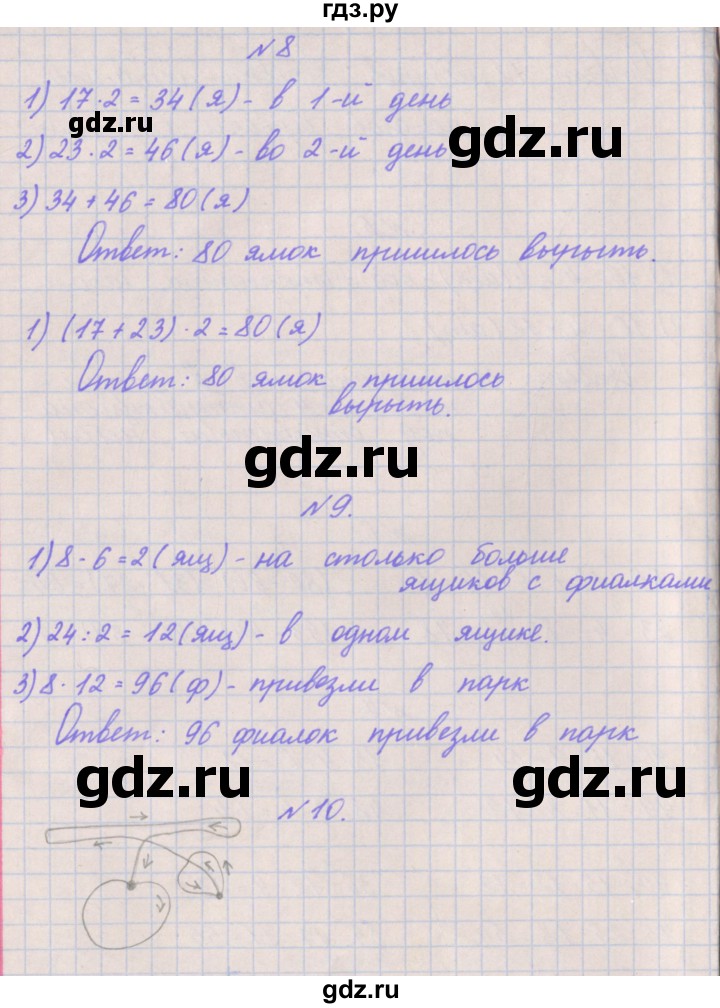 гдз.ру
№8
1) 17·2=34(я)- в 1-й день
gdz.ru
2) 23·2=46(я)- во 2-й день
gdz.ru
3) 34+46=80(я)
Ответ: 80 ямок пришлось вырыть.
1) (17+23)·2=80(я)
Ответ: 80 ямок пришлось
вырыть.
gdz.ru
№9.
1) 8-6=2(ящ)- на столько больше
ящиков с фиалками
2) 24:2=12(ящ)- в одном ящике.
3) 8·12=96(ф)- привезли в парк
Ответ: 96 фиалок привезли в парк
gdz.ru
gdz.ru
№10.
gdz.ru